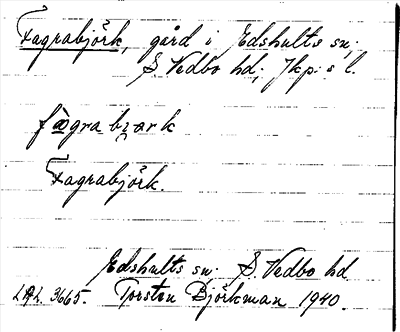 Fagrabjörk, gård i Edshults sn;
S. Vedbo hd; Jkp:s l.
fàgrabjœrk
Fagrabjörk.
Edshults sn; S. Vedbo hd
LAL. 3665. Torsten Björkman 1940.